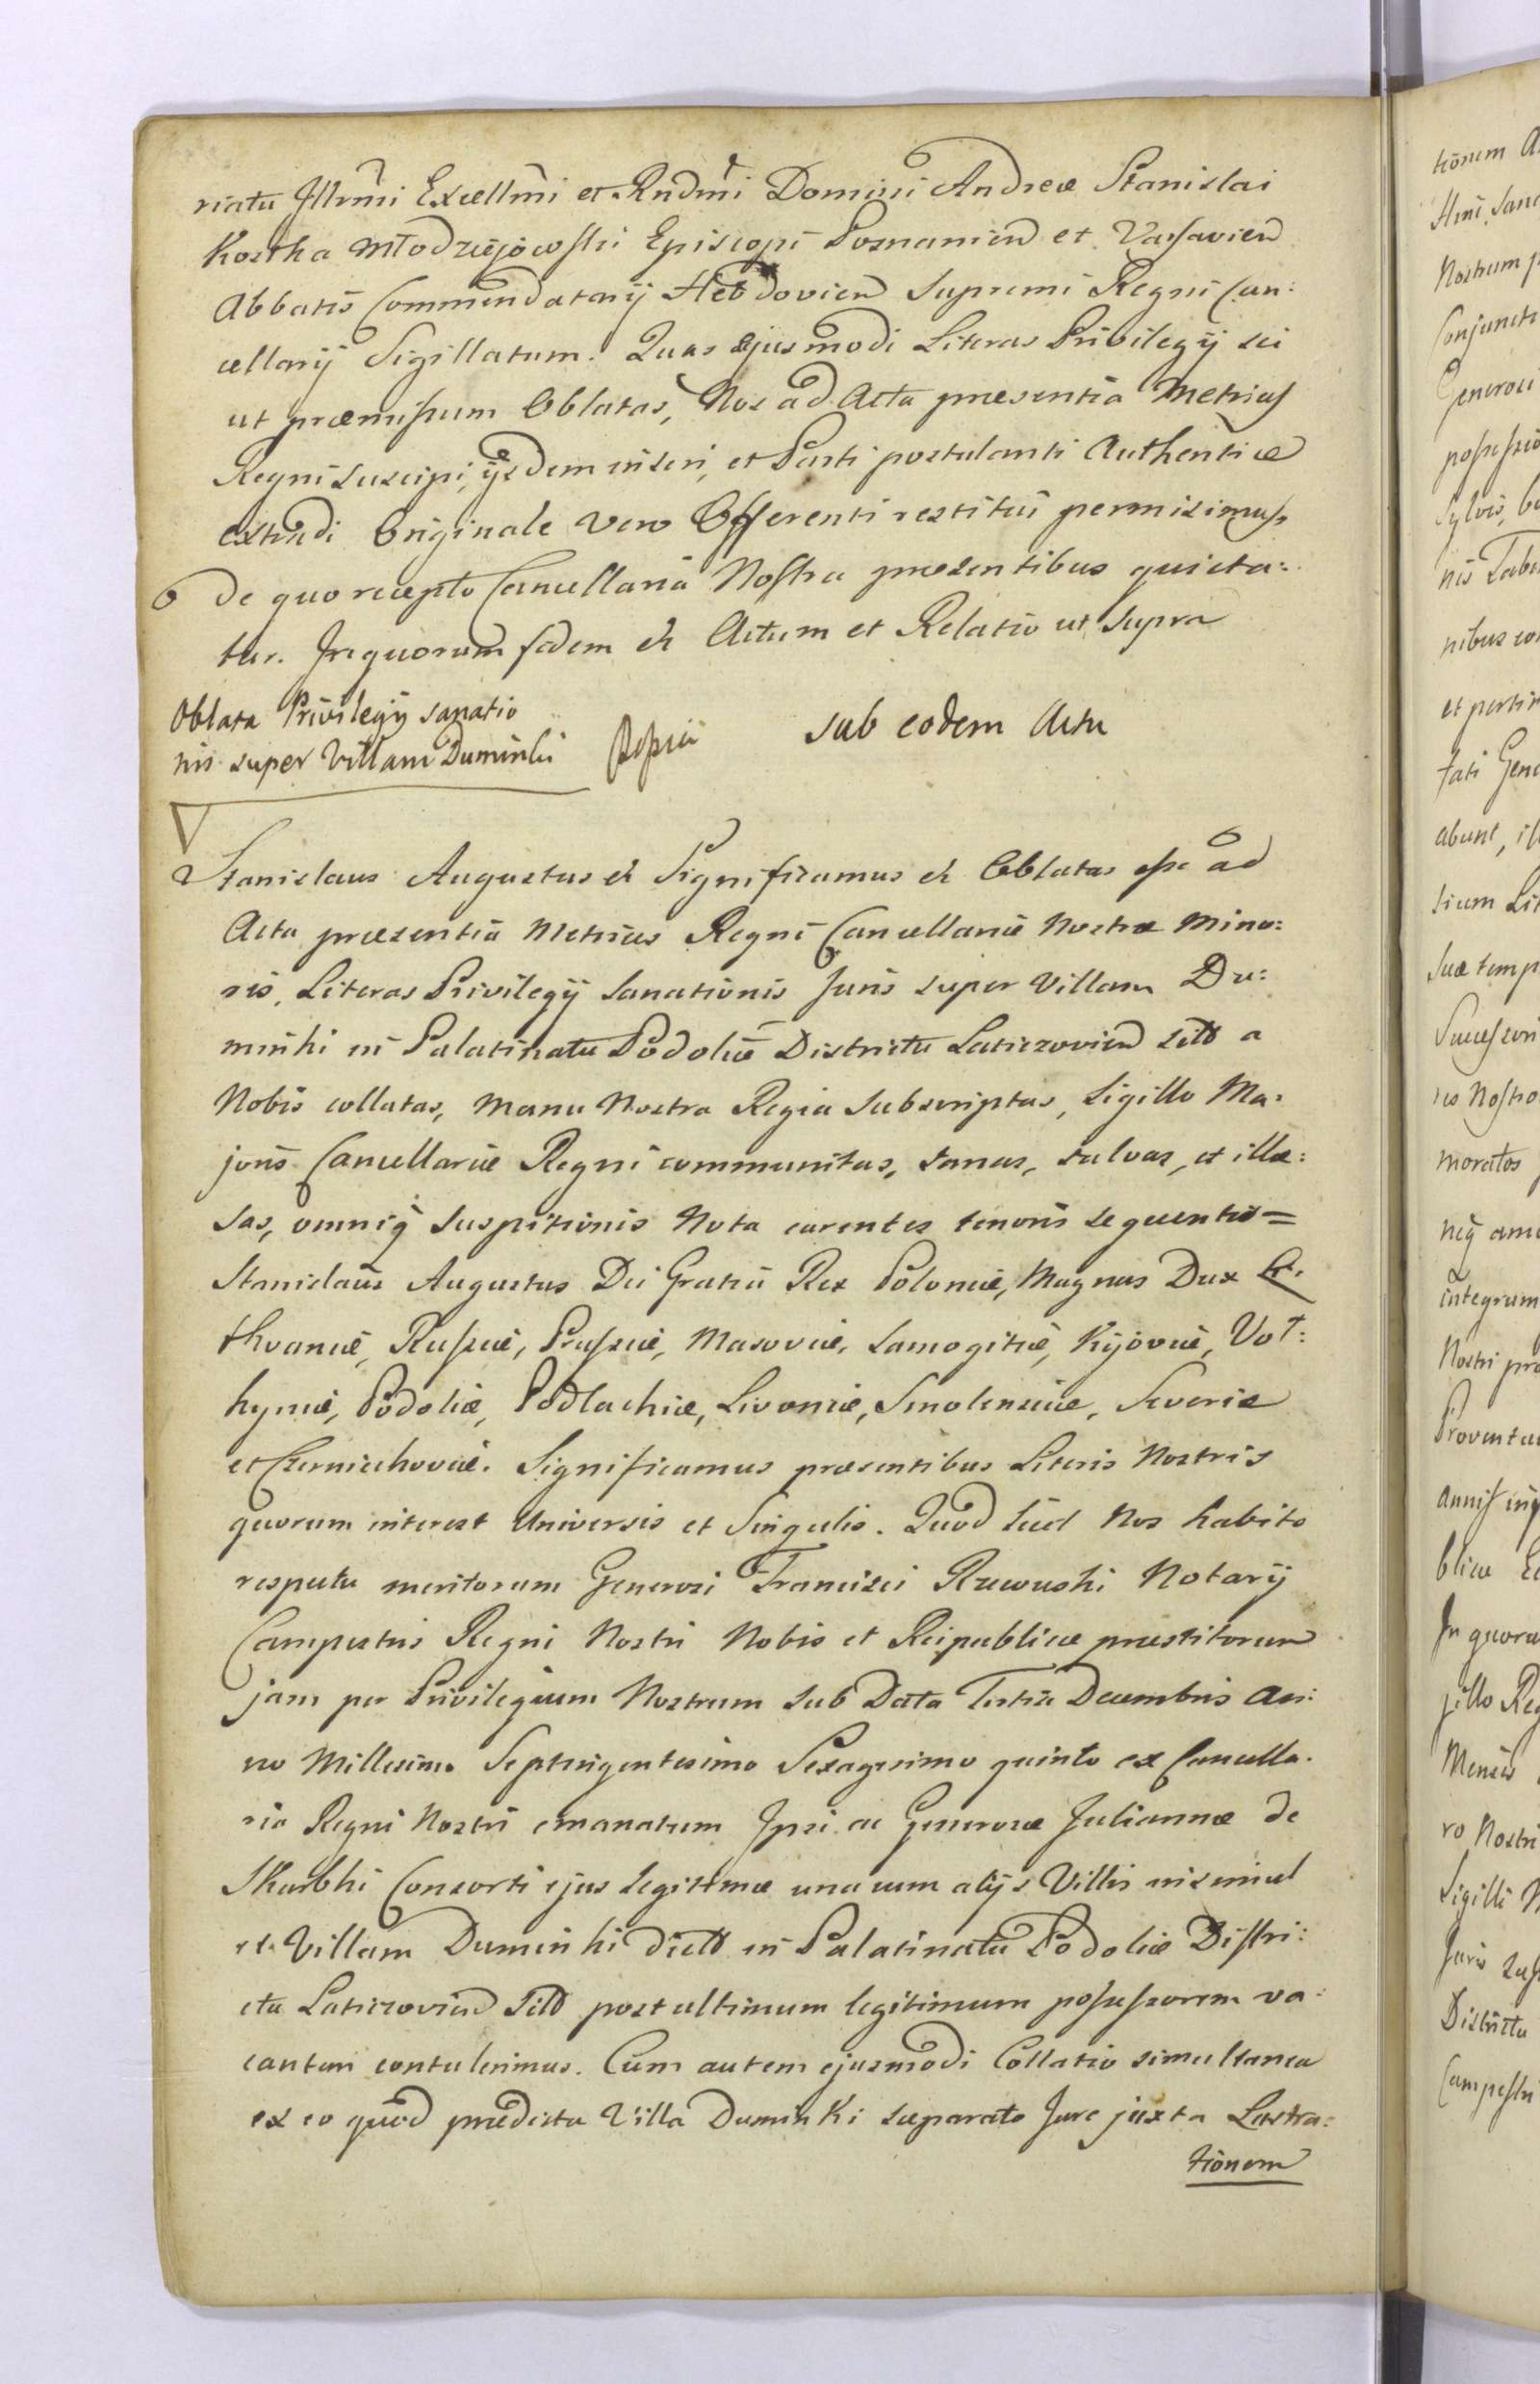 riatu Illrmi Excellmi et Rndmi Domini Andreæ Stanislai
Kostka Młodziejowski Episcopi Posnanien et Varsavien
Abbatis Commendatarij Hebdovien Supremi Regni Can:
cellarij Sigillatum. Quas ejusmodi Literas Privilegij sei
ut præmissum Oblatas, Nos ad Acta præsentia Metrices
Regni suscipi, ijsdem inseri, et Parti postulanti Authentice
extradi Originale vero Offerenti restitui permisimus,
de quo recepto Cancellaria Nostra præsentibus quieta:
tur. In quorum fidem & Actum et Relatio ut supra
Oblata Privilegij sanatio
nis super Villam Duminki
sub eodem Actu
Stanislaus Augustus & Significamus & Oblatas esse ad
Acta præsentia Metrices Regni Cancellariæ Nostræ Mino:
ris, Literas Privilegij Sanationis Juris super Villam Du:
minki in Palatinatu Podoliæ Districtu Laticzovien sitt a
Nobis collatas, Manu Nostra Regia Subscriptas, Sigillo Ma:
joris Cancellariæ Regni communitas, sanas, salvas, et illæ:
sas, omniq suspitionis Nota carentes tenoris sequentis =
Stanislaus Augustus Dei Gratia Rex Poloniæ, Magnus Dux Li:
thvaniæ, Russiæ, Prussiæ, Masoviæ, Samogitiæ, Kijoviæ, Vol:
hyniæ, Podoliæ, Podlachiæ, Livoniæ, Smolensciæ, Severiæ
et Czerniechoviæ. Significamus præsentibus Literis Nostris
quorum interest Universis et Singulis. Quod licet Nos habito
respectu meritorum Generosi Francisci Rzewuski Notarij
Campestris Regni Nostri Nobis et Reipublicæ præstitorum
jam per Privilegium Nostrum sub Data Tertia Decembris An:
no Millesimo Septingentesimo Sexagesimo quinto ex Cancella:
ria Regni Nostri emanatum Ipsi ac Generosæ Juliannæ de
Skarbki Consorti ejus legitimæ una cum alijs Villis insimul
et Villam Duminki dictt in Palatinatu Podoliæ Distri:
ctu Laticzovien sitt post ultimum legitimum possessorem va:
cantem contulerimus. Cum autem ejusmodi Collatio simultanea
ex eo quod prædicta Villa Duminki separato Jure juxta Lustra:
tionem